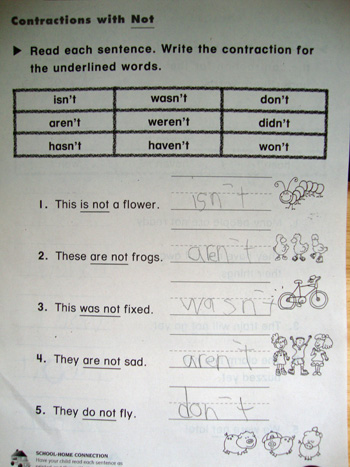 Contractions with Not
▶ Read each sentence. Write the contraction for
the underlined words.
isn't wasn't don't
aren't weren't didn't
hasn't haven't won't
1. This is not a flower. isn't
2. These are not frogs. aren't
3. This was not fixed. wasn't
4. They are not sad. aren't
5. They do not fly. don't
SCHOOL-HOME CONNECTION
Have your child read each sentence as